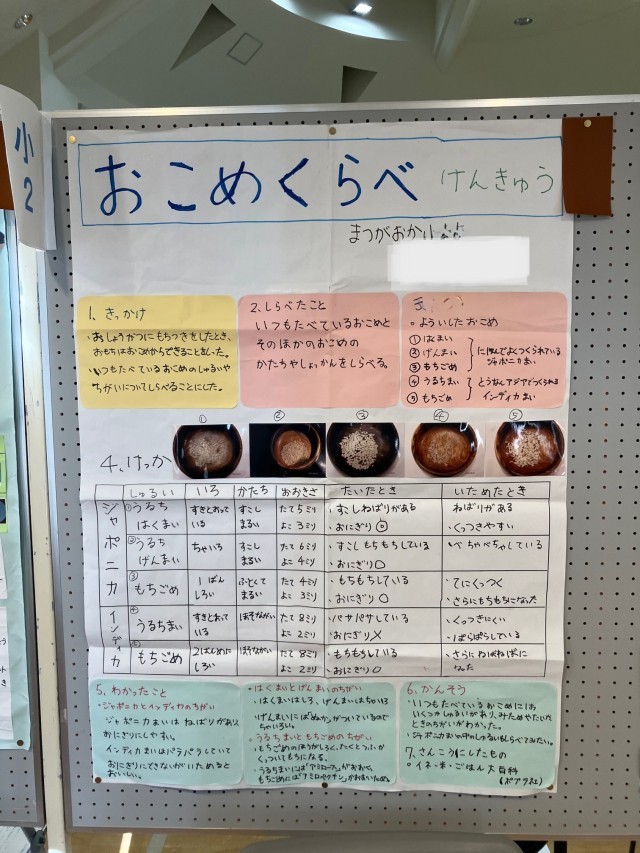 小2
おこめくらべ けんきゅう
まつがおか小
1. きっかけ
・おしょうがつにもちつきをしたとき、
おもちはおこめからできることをしった。
・いつもたべているおこめのしゅるいや
ちがいについてしらべることにした。
2. しらべたこと
いつもたべているおこめと
そのほかのおこめの
かたちやしょっかんをしらべる。
よういしたおこめ
① はくまい
② げんまい
③ もちごめ
に本でよくつくられている
ジャポニカまい
④ うるちまい
⑤ もちごめ
とうなんアジアでつくられる
インディカまい
① ② ③ ④ ⑤
4、けっか
しゅるい いろ かたち おおきさ たいたとき いためたとき
ジャポニカ
①うるち はくまい すきとおっている すこしまるい たて5ミリ よこ3ミリ ・すこしねばりがある ・おにぎり◎ ねばりがある ・くっつきやすい
②うるち げんまい ちゃいろ すこしまるい たて6ミリ よこ4ミリ ・すこしもちもちしている ・おにぎり○ ・べちゃべちゃしている
③もちごめ 1ばんしろい ふとくてまるい たて4ミリ よこ3ミリ ・もちもちしている ・おにぎり○ ・てにくっつく ・さらにもちもちになった
インディカ
④うるちまい すきとおっている ほそながい たて8ミリ よこ2ミリ ・パサパサしている ・おにぎり× ・くっつきにくい ・ぱらぱらしている
⑤もちごめ 2ばんめにしろい ほそながい たて8ミリ よこ2ミリ ・もちもちしている ・おにぎり○ ・さらにねばねばになった
5. わかったこと
・ジャポニカとインディカのちがい
ジャポニカまいはねばりがあり
おにぎりにしやすい。
インディカまいはパラパラしていて
おにぎりにできないがいためると
おいしい。
・はくまいとげんまいのちがい
・はくまいはしろ、げんまいはちゃいろ
げんまいには「ぬか」がついているので
ちゃいろい。
・うるちまいともちごめのちがい
・もちごめのほうがしろく、たくとふっか
くっついてもちになる。
・うるちまいには「アミロース」がおおく、
もちごめには「アミロペクチン」がおおいため。
6. かんそう
・いつもたべているおこめには
いくつかしゅるいがあり、みためやたいた
ときのちがいがわかった。
・ジャポニカまいの中のしゅるいもしらべてみたい。
7. さんこうにしたもの
・イネ・米・ごはん大百科
(ポプラ社)